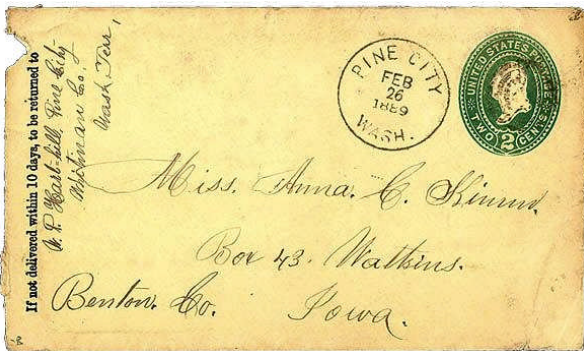 If not delivered within 10 days, to be returned to
Hart-hill, Pine City
Whitman Co.
Wash Terr,
PINE CITY
FEB
26
1889
WASH.
UNITED STATES POSTAGE
TWO CENTS
2
Miss. Anna. C.
Box 43. Watkins.
Benton. Co. Iowa.